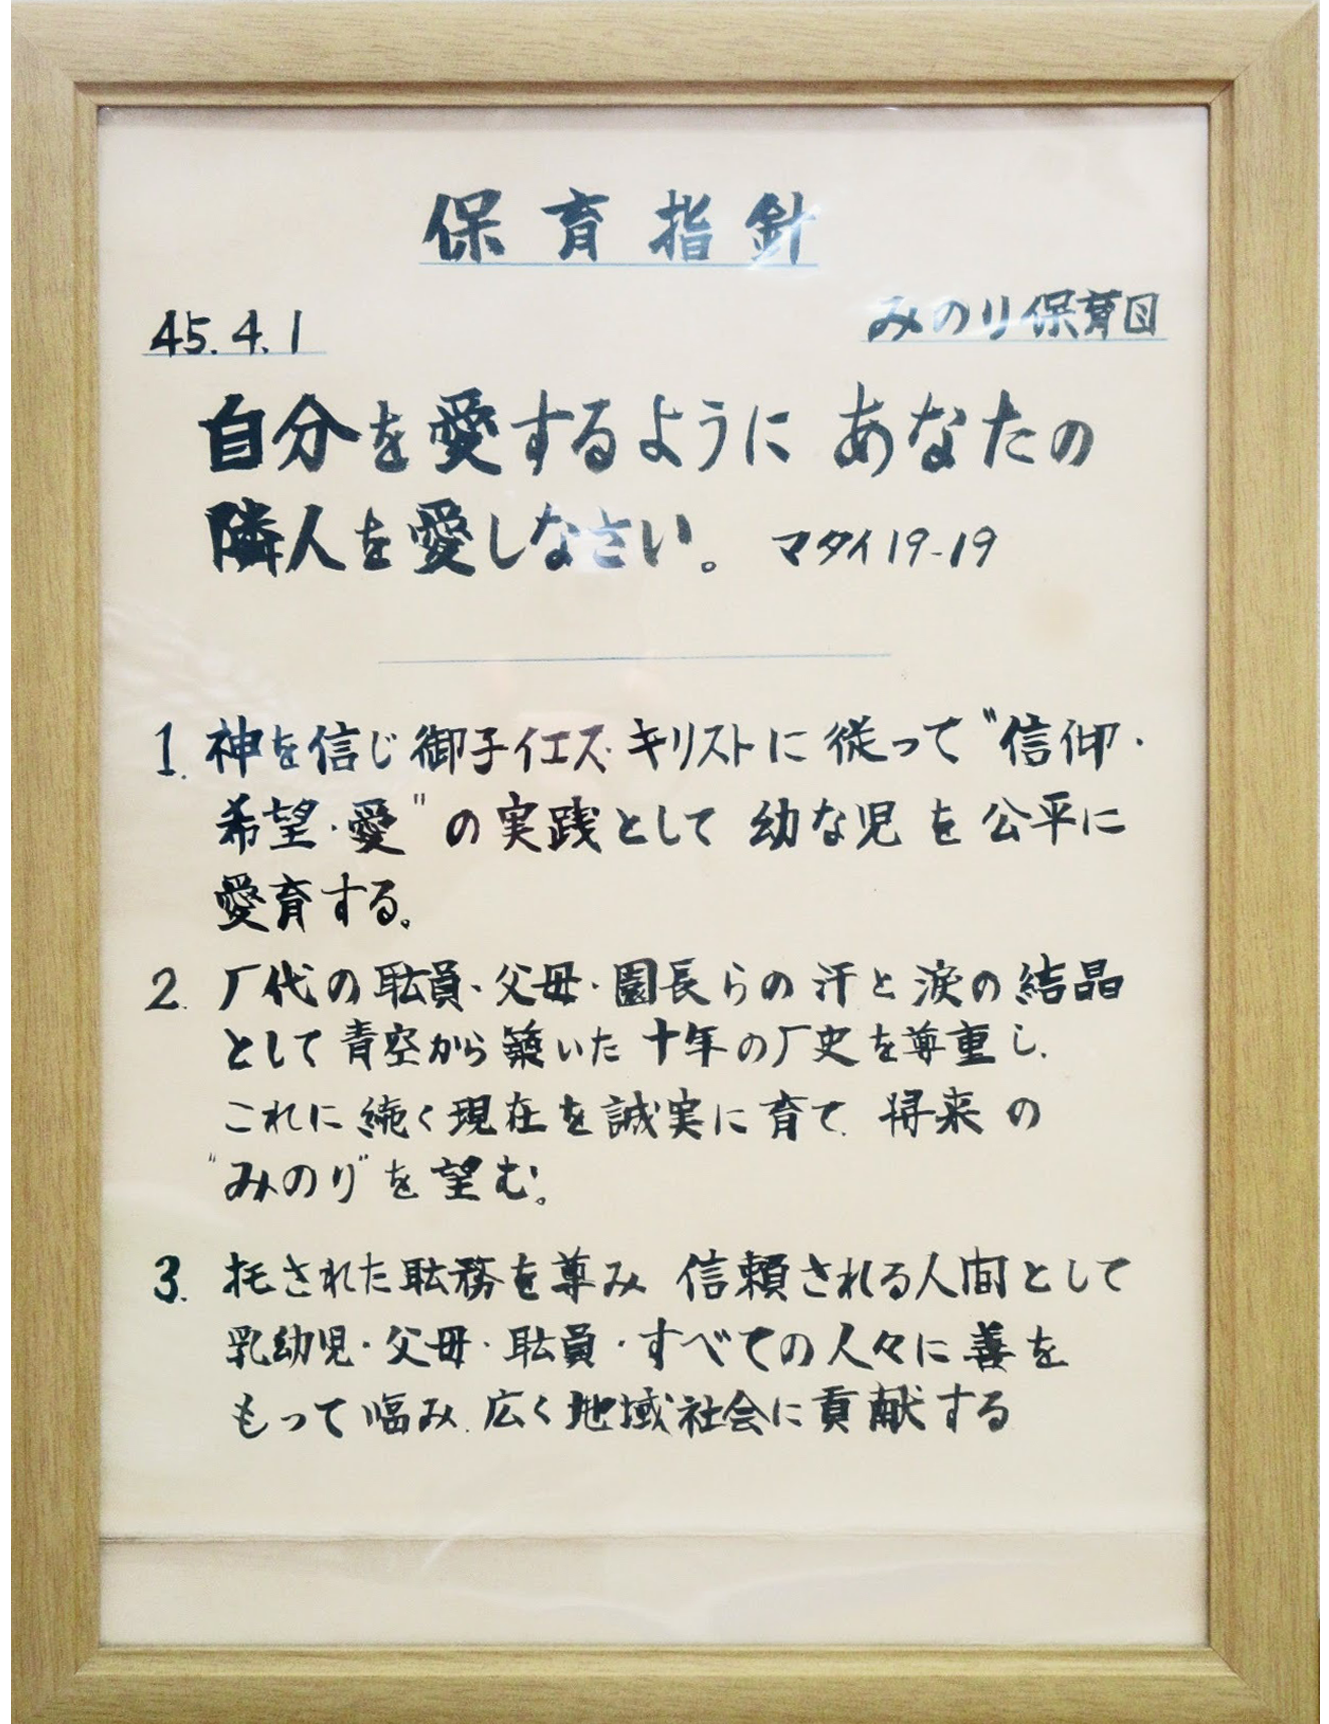 保育指針
45.4.1
みのり保育園
自分を愛するように あなたの
隣人を愛しなさい。 マタイ19-19
1. 神を信じ御子イエズ・キリストに従って〝信仰・
希望・愛〟の実践として 幼な児を公平に
愛育する。
2. 厂代の耺員・父母・園長らの汗と涙の結晶
として青空から築いた十年の厂史を尊重し、
これに続く現在を誠実に育て、将来の
〝みのり〟を望む。
3. 托された耺務を尊み 信頼される人間として
乳幼児・父母・耺員・すべての人々に善を
もって臨み、広く地域社会に貢献する